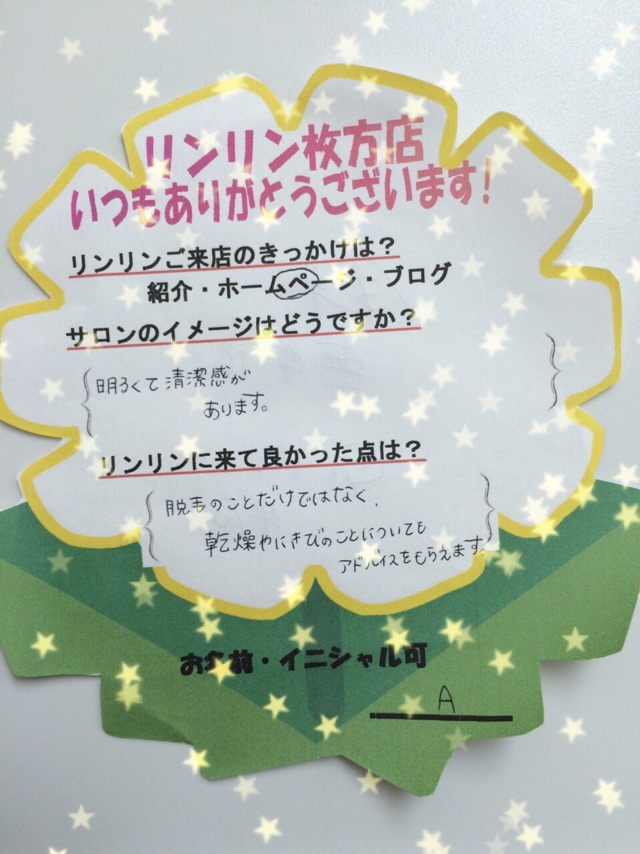 リンリン枚方店
いつもありがとうございます！
リンリンご来店のきっかけは？
紹介・ホームページ・ブログ
サロンのイメージはどうですか？
明るくて清潔感が
あります。
リンリンに来て良かった点は？
脱毛のことだけではなく、
乾燥やにきびのことについても
アドバイスをもらえます。
お名前・イニシャル可
A